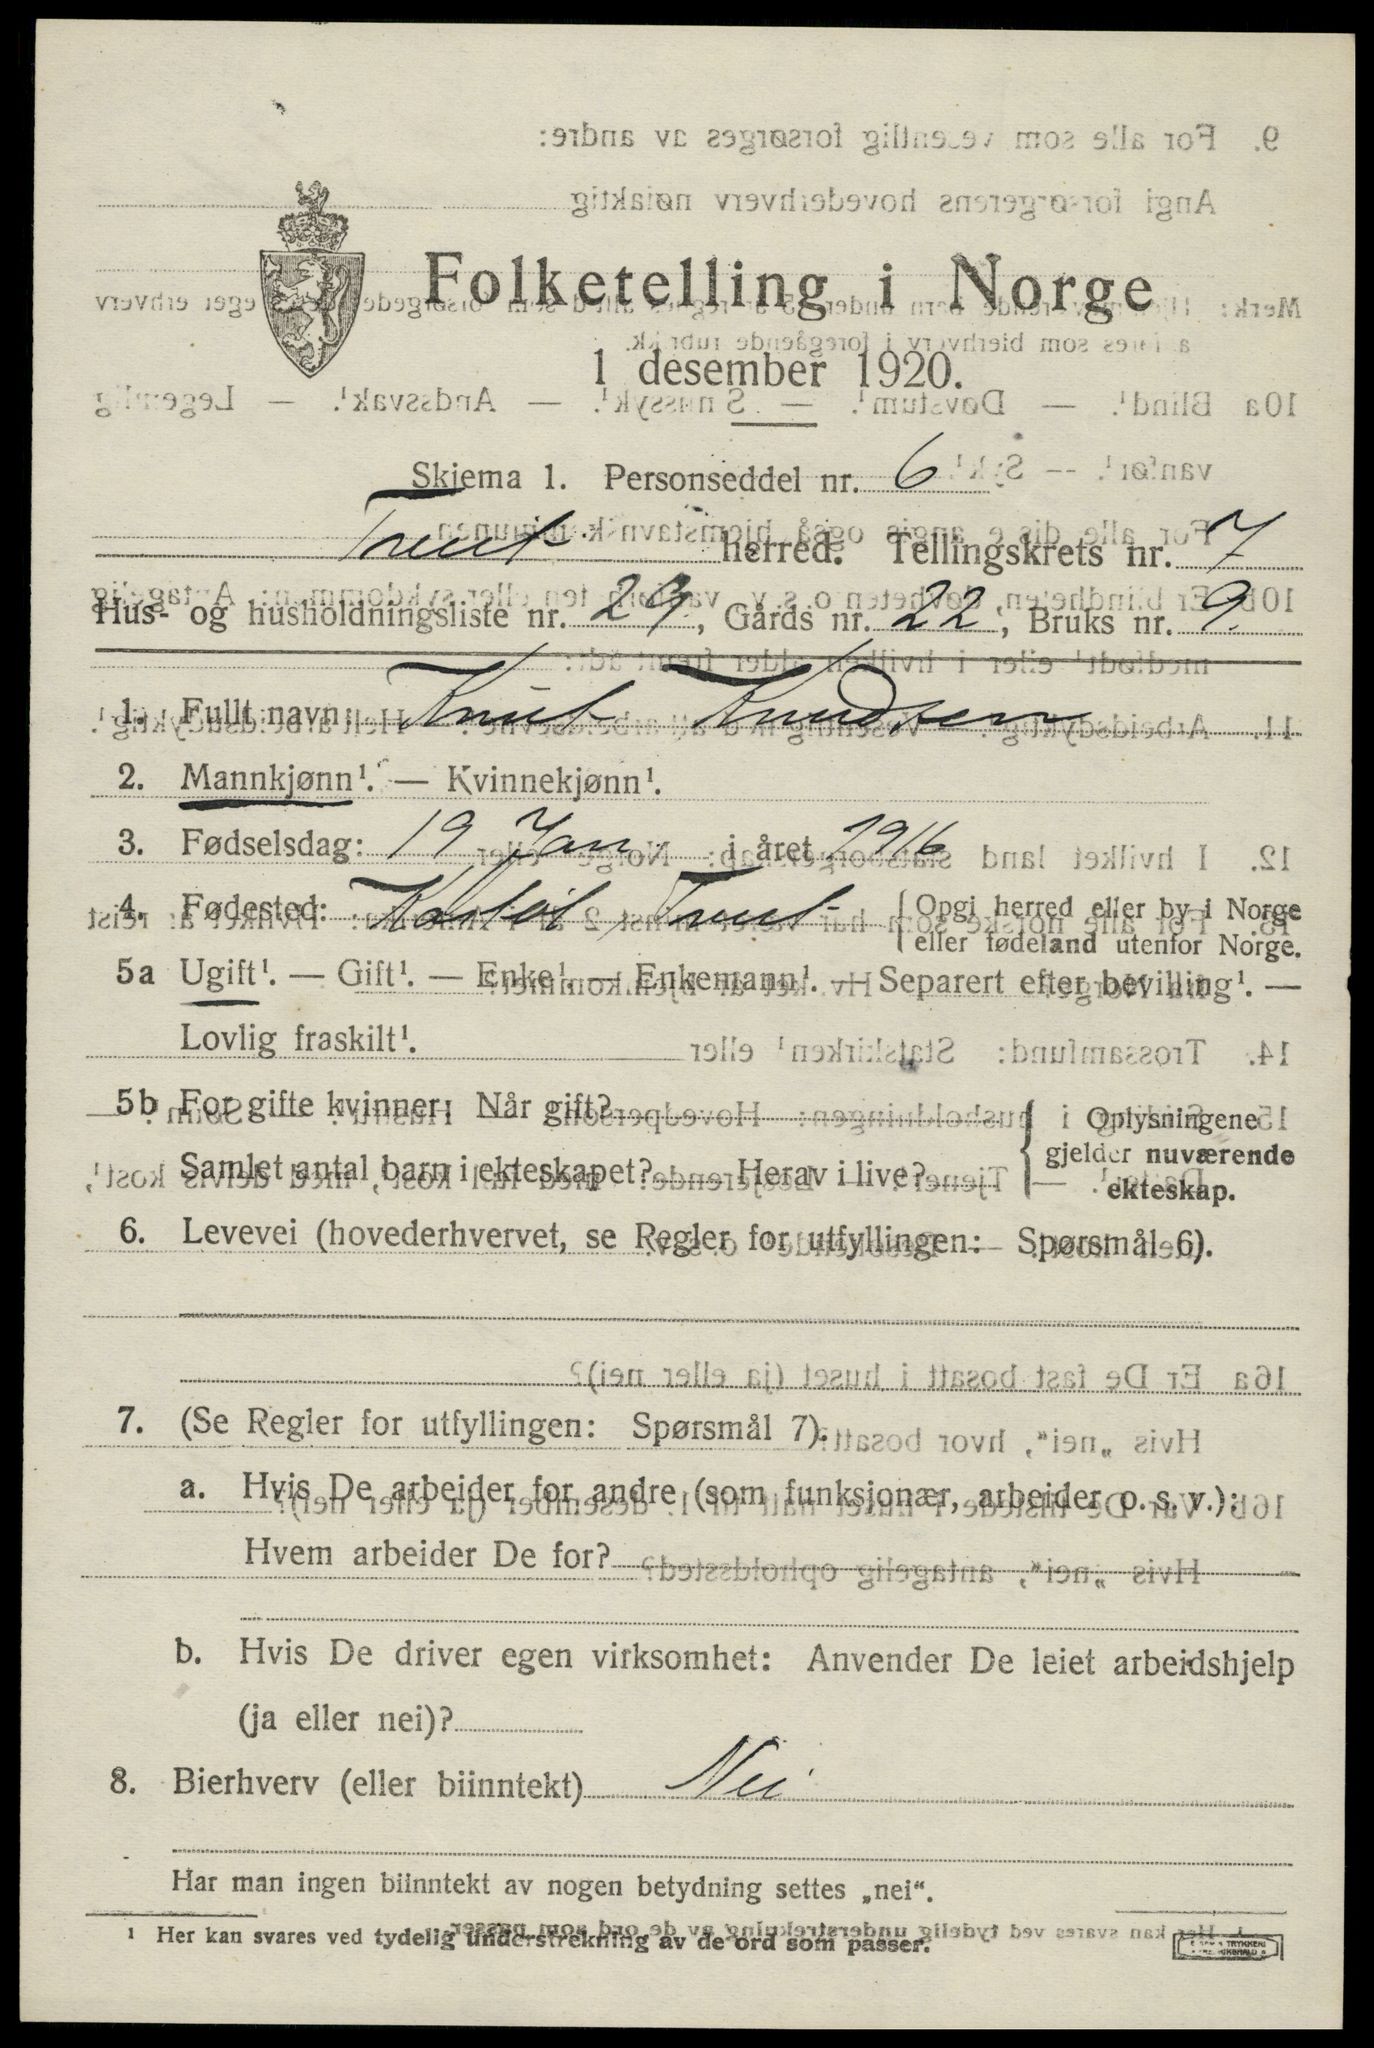 Folketelling i Norge
1 desember 1920.
Skjema 1. Personseddel nr. 6
herred. Tellingskrets nr. 7
Hus- og husholdningsliste nr. 29, Gårds nr. 22, Bruks nr. 9.
1. Fullt navn: Knut Knudsen
2. Mannkjønn¹. — Kvinnekjønn¹.
3. Fødselsdag: 19 Jan i året 1916
4. Fødested: {Opgi herred eller by i Norge
eller fødeland utenfor Norge.
5a Ugift¹. — Gift¹. — Enke¹. — Enkemann¹. — Separert efter bevilling¹. —
Lovlig fraskilt¹.
5b For gifte kvinner: Når gift?
Samlet antal barn i ekteskapet? Herav i live?
{ Oplysningene
gjelder nuværende
ekteskap.
6. Levevei (hovederhvervet, se Regler for utfyllingen: Spørsmål 6).
7. (Se Regler for utfyllingen: Spørsmål 7).
a. Hvis De arbeider for andre (som funksjonær, arbeider o. s. v.):
Hvem arbeider De for?
b. Hvis De driver egen virksomhet: Anvender De leiet arbeidshjelp
(ja eller nei)?
8. Bierhverv (eller biinntekt) Nei
Har man ingen biinntekt av nogen betydning settes „nei“.
¹ Her kan svares ved tydelig understrekning av de ord som passer.